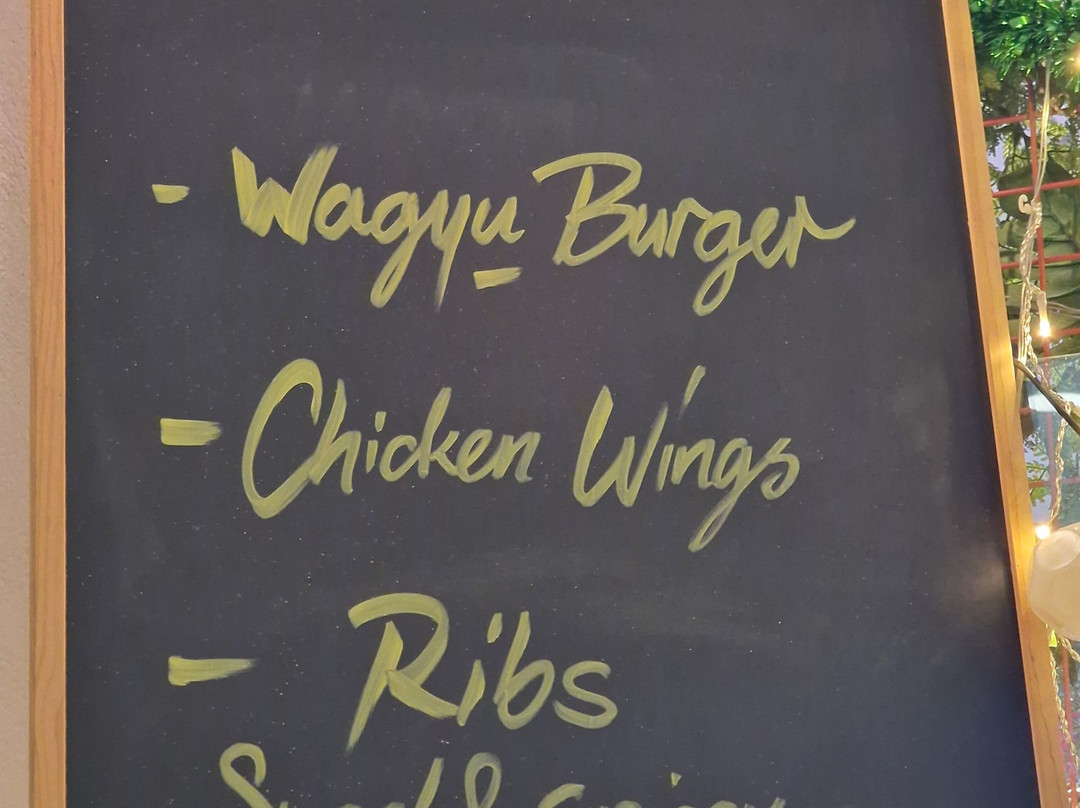 - Wagyu Burger
- Chicken Wings
- Ribs